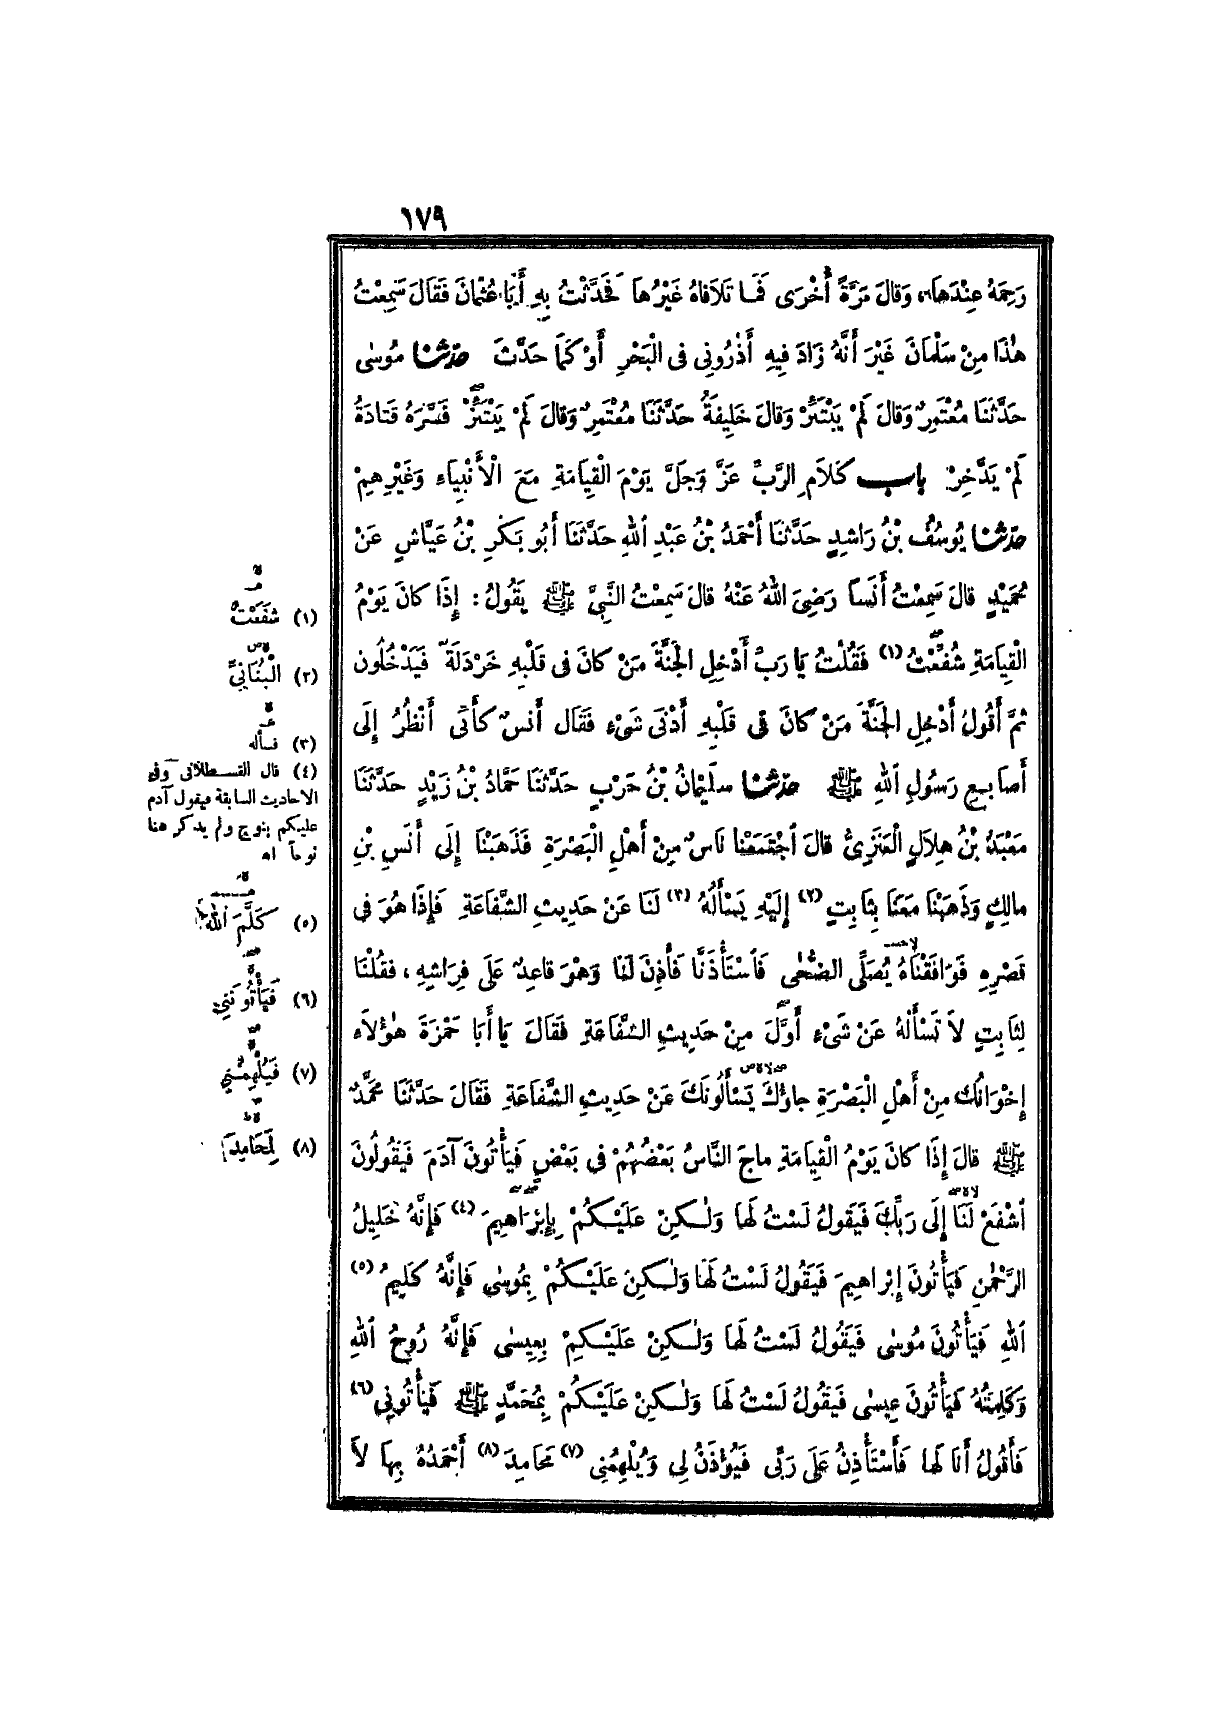 ١٧٩
رَحِمَهُ عِنْدَهَا، وَقالَ مَرَّةً أُخْرَى فَمَا تَلَافَاهُ غَيْرُها فَحَدَّثْتُ بِهِ أَبَا عُثْمانَ فَقَالَ سَمِعْتُ
هٰذَا مِنْ سَلْمَانَ غَيْرَ أَنَّهُ زَادَ فِيهِ أَذْرُونِي فى الْبَحْرِ أَوْ كَمَا حَدَّثَ حدّثنا مُوسٰى
حَدَّثَنَا مُعْتَمِرٌ وَقالَ لَمْ يَبْتَئِرْ وَقالَ خَلِيفَةُ حَدَّثَنَا مُعْتَمِرٌ وَقالَ لَمْ يَبْتَئِزْ فَسَّرَهُ قَتَادَةُ
لَمْ يَدَّخِرْ باب كَلَامِ الرَّبِّ عَزَّ وَجَلَّ يَوْمَ الْقِيَامَةِ مَعَ الْأَنْبِيَاءِ وَغَيْرِهِمْ
حدّثنا يُوسُفُ بْنُ رَاشِدٍ حَدَّثَنَا أَحْمَدُ بْنُ عَبْدِ اللهِ حَدَّثَنَا أَبُو بَكْرِ بْنُ عَيَّاشٍ عَنْ
حُمَيْدٍ قالَ سَمِعْتُ أَنَسًا رَضِيَ اللهُ عَنْهُ قالَ سَمِعْتُ النَّبِيَّ ﷺ يَقُولُ: إِذَا كانَ يَوْمُ
الْقِيَامَةِ شُفِّعْتُ (١) فَقُلْتُ يَا رَبِّ أَدْخِلِ الجَنَّةَ مَنْ كانَ فى قَلْبِهِ خَرْدَلَةٌ فَيَدْخُلُونَ
ثمَّ أَقُولُ أَدْخِلِ الجَنَّةَ مَنْ كانَ فى قَلْبِهِ أَدْنَى شَىْءٍ فَقَالَ أَنَسٌ كَأَنِّى أَنْظُرُ إِلَى
أَصَابِعِ رَسُولِ اللهِ ﷺ حدّثنا سُلَيْمانُ بْنُ حَرْبٍ حَدَّثَنَا حَمَّادُ بْنُ زَيْدٍ حَدَّثَنَا
مَعْبَدُ بْنُ هِلَالٍ الْعَنَزِيُّ قالَ اجْتَمَعْنَا نَاسٌ مِنْ أَهْلِ الْبَصْرَةِ فَذَهَبْنَا إِلَى أَنَسِ بْنِ
مالِكٍ وَذَهَبْنَا مَعَنَا بِثَابِتٍ (٢) إِلَيْهِ يَسْأَلُهُ (٣) لَنَا عَنْ حَدِيثِ الشَّفَاعَةِ فَإِذَا هُوَ فى
قَصْرِهِ فَوَافَقْنَاهُ يُصَلِّى الضُّحٰى فَاسْتَأْذَنَّا فَأَذِنَ لَنَا وَهْوَ قاعِدٌ عَلَى فِرَاشِهِ، فَقُلْنَا
لِثَابِتٍ لاَ تَسْأَلْهُ عَنْ شَىْءٍ أَوَّلَ مِنْ حَدِيثِ الشَّفَاعَةِ فَقَالَ يَا أَبَا حَمْزَةَ هٰؤُلَاءِ
إِخْوَانُكَ مِنْ أَهْلِ الْبَصْرَةِ جاؤُكَ يَسْأَلُونَكَ عَنْ حَدِيثِ الشَّفَاعَةِ فَقَالَ حَدَّثَنَا مُحَمَّدٌ
ﷺ قالَ إِذَا كانَ يَوْمُ الْقِيَامَةِ ماجَ النَّاسُ بَعْضُهُمْ فى بَعْضٍ فَيَأْتُونَ آدَمَ فَيَقُولُونَ
اشْفَعْ لَنَا إِلَى رَبِّكَ فَيَقُولُ لَسْتُ لَهَا وَلٰكِنْ عَلَيْكُمْ بِإِبْرَاهِيمَ (٤) فَإِنَّهُ خَلِيلُ
الرَّحْمٰنِ فَيَأْتُونَ إِبْرَاهِيمَ فَيَقُولُ لَسْتُ لَهَا وَلٰكِنْ عَلَيْكُمْ بِمُوسٰى فَإِنَّهُ كَلِيمُ (٥)
اللهِ فَيَأْتُونَ مُوسٰى فَيَقُولُ لَسْتُ لَهَا وَلٰكِنْ عَلَيْكُمْ بِعِيسٰى فَإِنَّهُ رُوحُ اللهِ
وَكَلِمَتُهُ فَيَأْتُونَ عِيسٰى فَيَقُولُ لَسْتُ لَهَا وَلٰكِنْ عَلَيْكُمْ بِمُحَمَّدٍ ﷺ فَيَأْتُونِي (٦)
فَأَقُولُ أَنَا لَهَا فَأَسْتَأْذِنُ عَلَى رَبِّى فَيُؤْذَنُ لِي وَيُلْهِمُنِي (٧) مَحَامِدَ (٨) أَحْمَدُهُ بِهَا لاَ
(١) شَفَعْتُ
(٢) الْبُنَانِيِّ
(٣) فسأله
(٤) قال القسطلانى وفى
الاحاديث السابقة فيقول آدم
عليكم بنوح ولم يذكر هنا
نوحاً اه
(٥) كَلَّمَ اللهَ
(٦) فَيَأْتُونَنِي
(٧) فَيُلْهِمُنِي
(٨) بِمَحَامِدَ